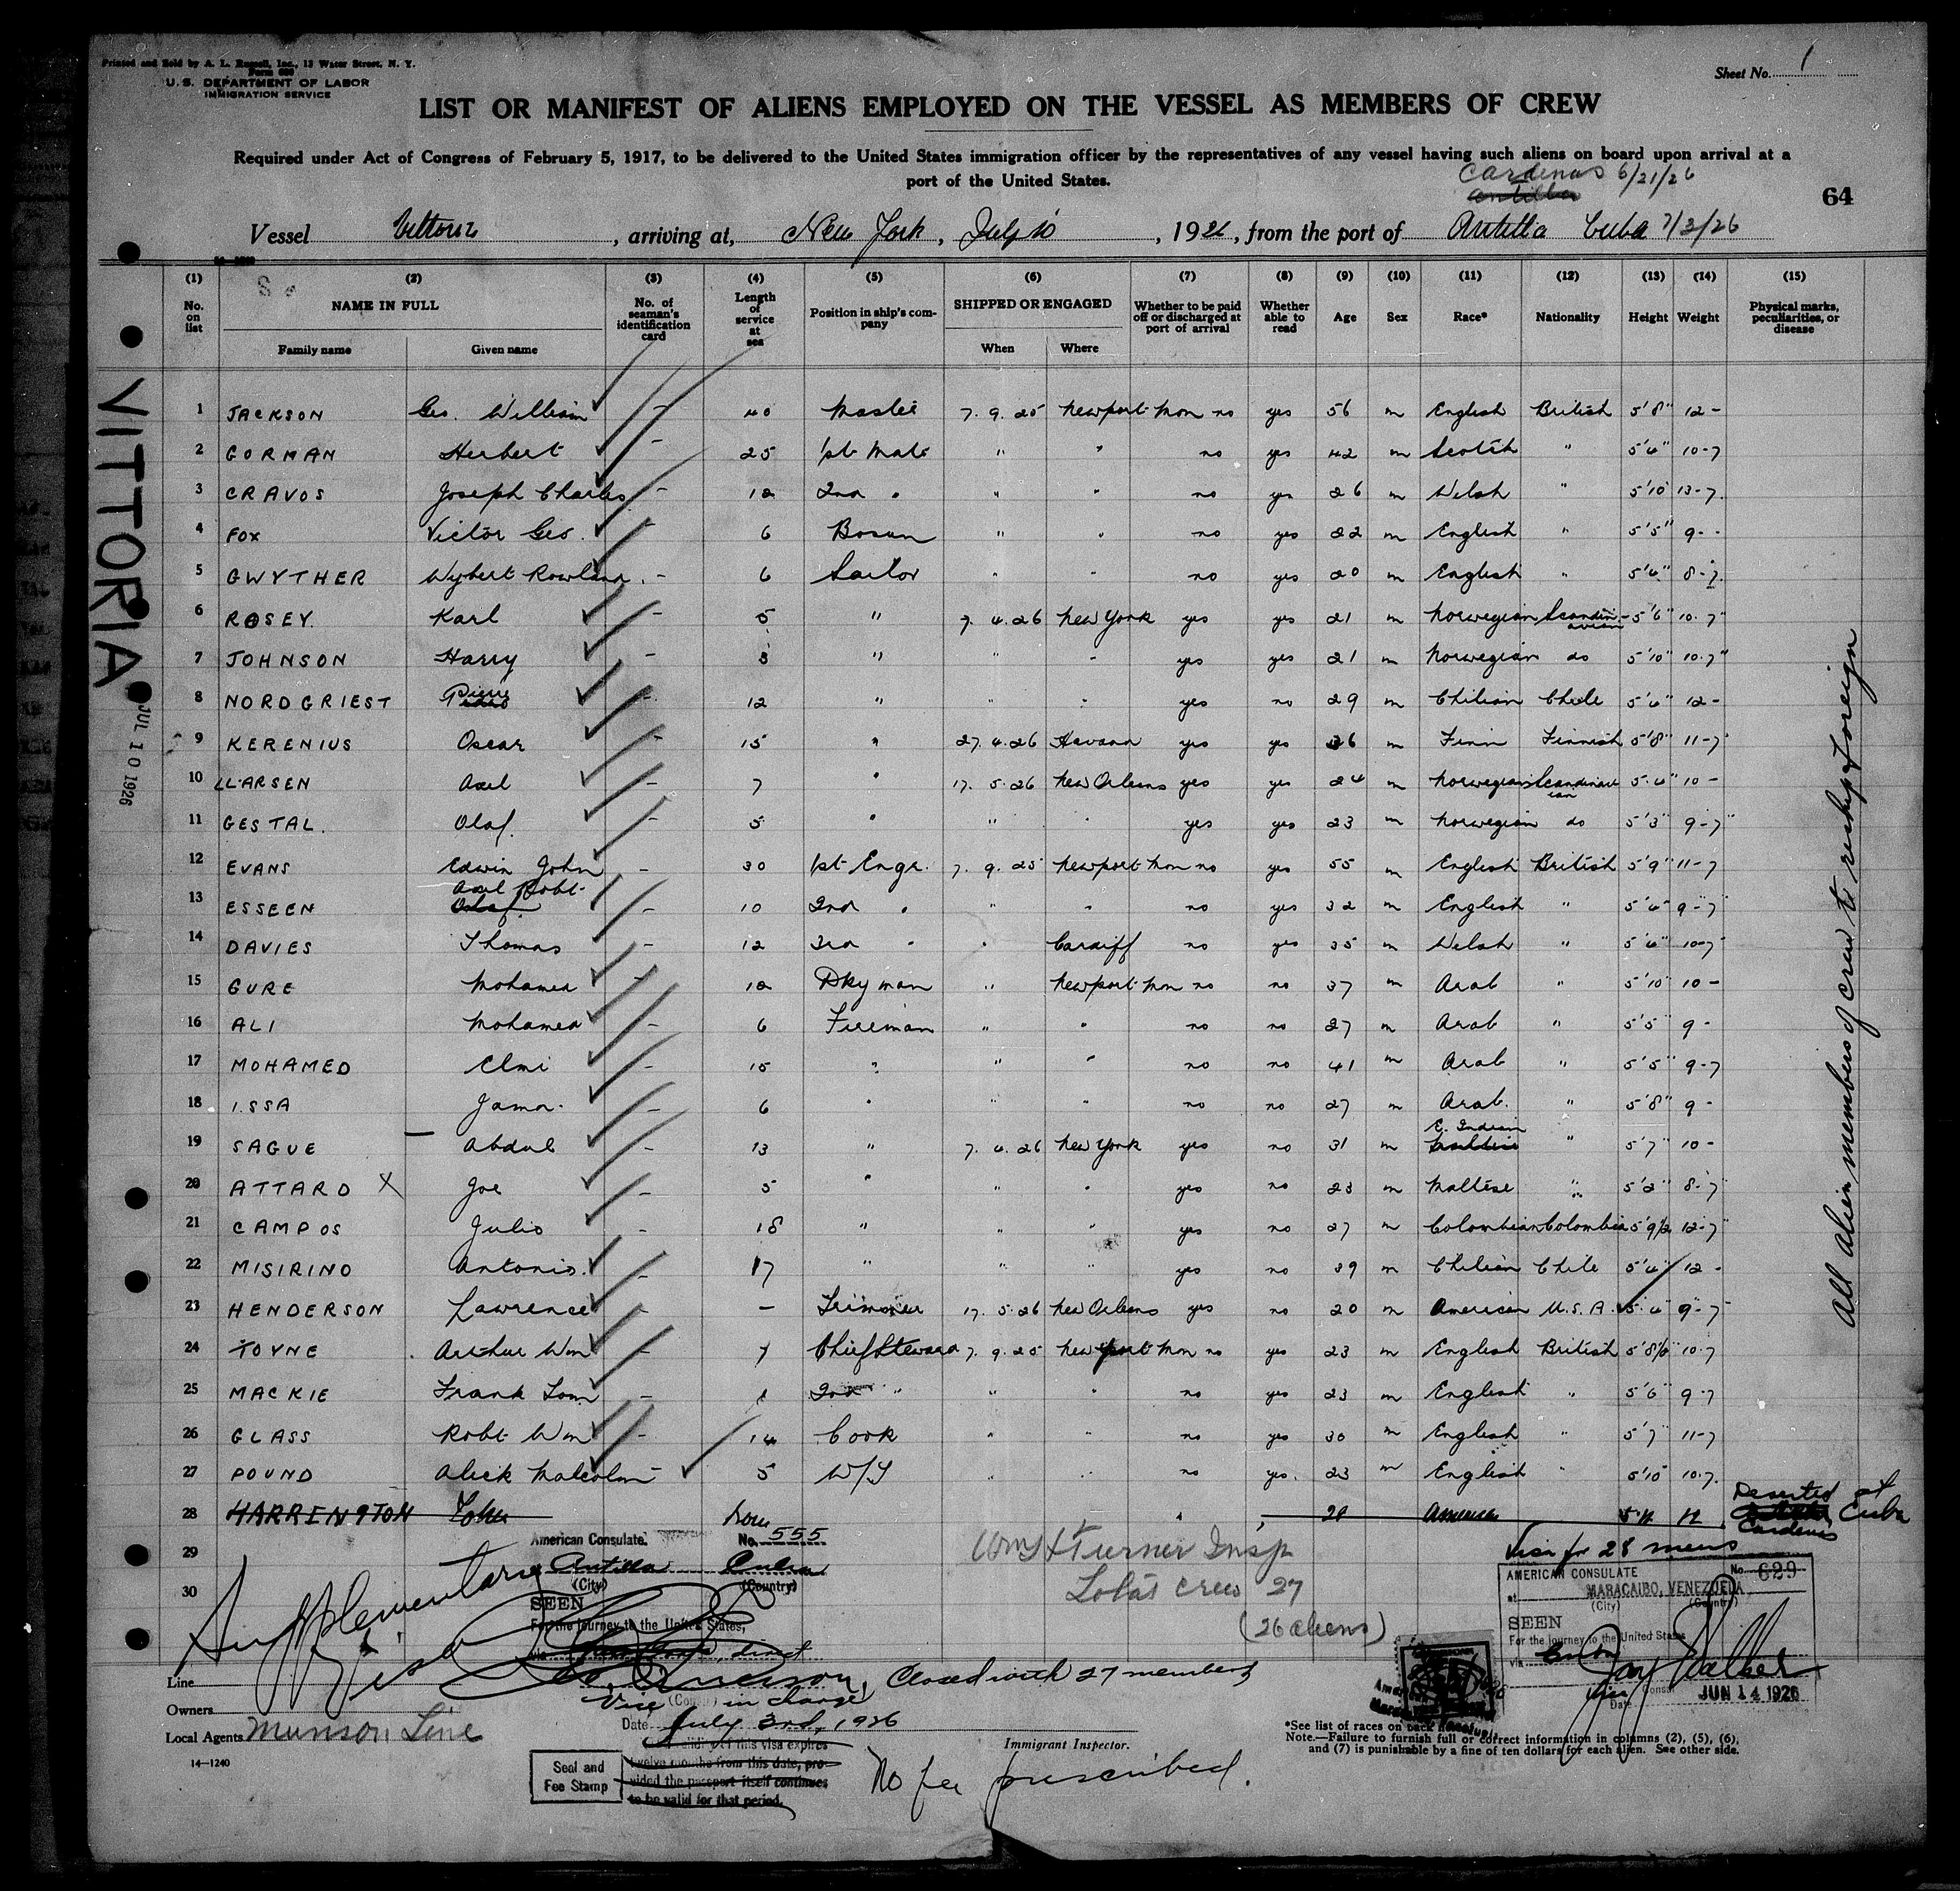 Printed and Sold by A. L. Russell, Inc., 13 Water Street, N. Y.
Form 689
U. S. DEPARTMENT OF LABOR
IMMIGRATION SERVICE
Sheet No. 1
LIST OR MANIFEST OF ALIENS EMPLOYED ON THE VESSEL AS MEMBERS OF CREW
Required under Act of Congress of February 5, 1917, to be delivered to the United States immigration officer by the representatives of any vessel having such aliens on board upon arrival at a
port of the United States.
Cardenas 6/21/26
Antilla
64
Vessel Vittoria, arriving at, New York, July 10, 1926, from the port of Antilla Cuba 7/3/26
(1) (2) (3) (4) (5) (6) (7) (8) (9) (10) (11) (12) (13) (14) (15)
No. on list NAME IN FULL Family name Given name No. of seaman's identification card Length of service at sea Position in ship's company SHIPPED OR ENGAGED When Where Whether to be paid off or discharged at port of arrival Whether able to read Age Sex Race* Nationality Height Weight Physical marks, peculiarities, or disease
VITTORIA
JUL 10 1926
1 JACKSON Geo. William - 40 Master 7. 9. 25 Newport Mon no yes 56 m English British 5'8" 12 -
2 GORMAN Herbert - 25 1st Mate " " no yes 42 m Scotch " 5'6" 10-7
3 CRAVOS Joseph Charles - 12 2nd " " " no yes 26 m Welsh " 5'10 13-7
4 FOX Victor Geo. - 6 Bosun " " no yes 22 m English " 5'5" 9 -
5 GWYTHER Wybert Rowland. - 6 Sailor " " no yes 20 m English " 5'6" 8-7
6 ROSEY. Karl - 5 " 7. 4. 26 New York yes yes 21 m Norwegian Scandinavian 5'6" 10.7"
7 JOHNSON Harry - 3 " " " yes yes 21 m Norwegian do 5'10" 10.7"
8 NORDGRIEST Pierre - 12 " " " yes no 29 m Chilian Chile 5'6" 12 -
9 KERENIUS Oscar - 15 " 27. 4. 26 Havana yes yes 36 m Finn Finnish 5'8" 11-7
10 LARSEN Axel - 7 " 17. 5. 26 New Orleans yes yes 24 m Norwegian Scandinavian 5.6" 10 -
11 GESTAL. Olaf. - 5 " " " yes yes 23 m Norwegian do 5'3" 9-7"
12 EVANS Edwin John - 30 1st Engr. 7. 9. 25 Newport Mon no yes 55 m English British 5'9" 11-7
13 ESSEEN Axel Robt. Olaf - 10 2nd " " " no yes 32 m English " 5'6" 9-7
14 DAVIES Thomas - 12 3rd " " Cardiff no yes 35 m Welsh " 5'6" 10-7
15 GURE Mohamed - 12 Dkyman " Newport Mon no no 37 m Arab " 5'10" 10 -
16 ALI Mohamed - 6 Fireman " " no no 27 m Arab " 5'5" 9 -
17 MOHAMED Elmi - 15 " " " no no 41 m Arab " 5'5" 9-7
18 ISSA Jama. - 6 " " " no no 27 m Arab. " 5'8" 9 -
19 SAGUE Abdul - 13 " 7. 4. 26 New York yes no 31 m E. Indian " 5'7" 10 -
20 ATTARD X Joe - 5 " " " yes no 23 m Maltese " 5'2" 8-7
21 CAMPOS Julio - 18 " " " yes no 27 m Colombian Colombia 5'9½ 12-7"
22 MISIRINO Antonio. - 17 " " " yes no 39 m Chilian Chile 5'6" 12 -
23 HENDERSON Lawrence - - Trimmer 17. 5. 26 New Orleans yes no 20 m American U.S.A. 5'6" 9-7
24 TOYNE Arthur Wm - 7 Chief Steward 7. 9. 25 Newport Mon no yes 23 m English British 5'8½" 10.7
25 MACKIE Frank Tom - 1 2nd " " " no yes 23 m English " 5'6" 9-7
26 GLASS Robt Wm - 14 Cook " " no yes 30 m English " 5'7" 11-7
27 POUND Alick Malcolm - 5 W/T " " no yes. 23 m English " 5'10" 10.7.
28 HARRENGTON John 28 American Deserted at Cardenas Cuba
29
30
All alien members of crew to reship foreign
American Consulate. No. 555
Antilla Cuba
(City) (Country)
SEEN
For the journey to the United States,
via New York, direct
Supplementary Visa
Vice (Consul) in charge
Closed with 27 members
Date July 3rd, 1926
Validity of this visa expires
twelve months from this date, pro-
vided the passport itself continues
to be valid for that period.
Seal and Fee Stamp
No fee prescribed.
Wm H Turner Insp
Total crew 27
(26 aliens)
Visa for 28 mens
AMERICAN CONSULATE No. 629
at MARACAIBO, VENEZUELA
(City) (Country)
SEEN
For the journey to the United States
via
Vice Consul
Date JUN 14 1926
Line
Owners
Local Agents Munson Line
14—1240
Immigrant Inspector.
*See list of races on back hereof.
Note.—Failure to furnish full or correct information in columns (2), (5), (6),
and (7) is punishable by a fine of ten dollars for each alien. See other side.